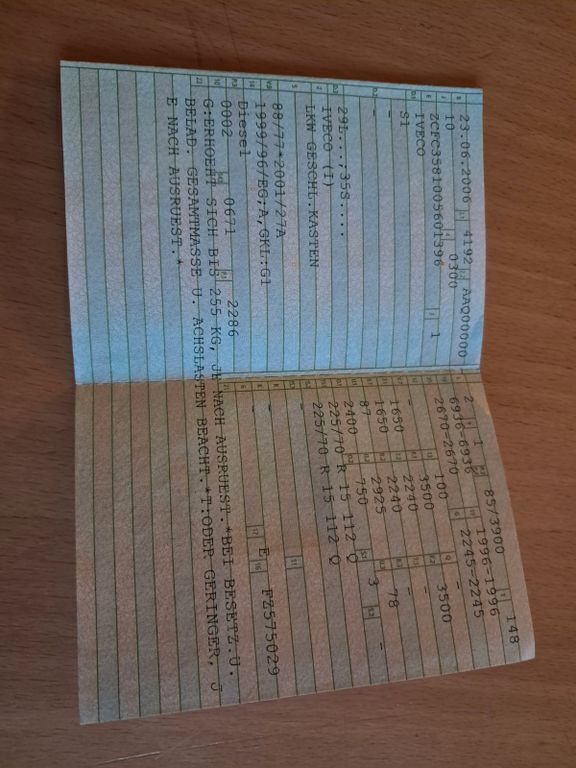 23.06.2006 4192 AAQ00000 -
10 0300
ZCFC3581005601396 1
IVECO
S1
-
-
29L...;35S....
IVECO (I)
LKW GESCHL.KASTEN
-
88/77*2001/27A
1999/96/EG;A,GKL:G1
Diesel
0002 0671 2286
2 1 85/3900 148
6936-6936 1996-1996
2670-2670 2245-2245
- 100 - 3500
- 3500 -
- 2240 -
1650 2240 78
1650 2925 -
87 750 3 -
2400
225/70 R 15 112 Q
225/70 R 15 112 Q
-
-
- E FZ575029
G:ERHOEHT SICH BIS 255 KG, JE NACH AUSRUEST.*BEI BESETZ.U.
BELAD. GESAMTMASSE U. ACHSLASTEN BEACHT.*T:ODER GERINGER, J
E NACH AUSRUEST.*